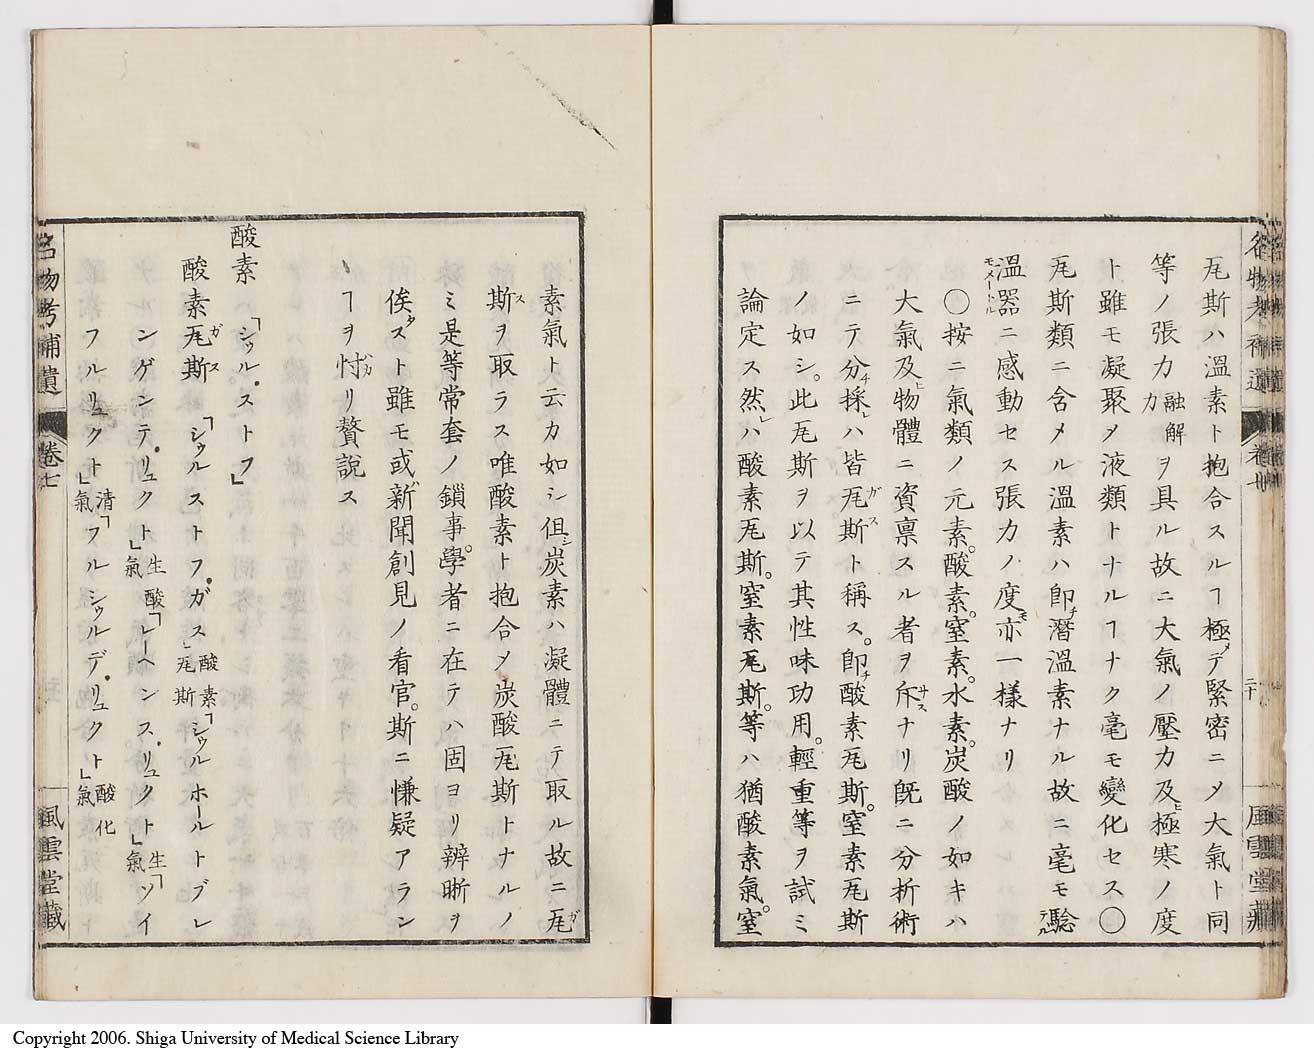 瓦斯ハ溫素ト抱合スルヿ極メテ緊密ニメ大氣ト同
等ノ張力融解力ヲ具ル故ニ大氣ノ壓力及ヒ極寒ノ度
ト雖モ凝聚メ液類トナルヿナク毫モ變化セス〇
瓦斯類ニ含メル溫素ハ即チ潛溫素ナル故ニ毫モ驗テル
溫器モメートルニ感動セス張力ノ度モ亦一樣ナリ
〇按ニ氣類ノ元素。酸素。窒素。水素。炭酸ノ如キハ
大氣及ヒ物體ニ資稟スル者ヲ斥サスナリ既ニ分析術
ニテ分チ採レハ皆瓦斯ガスト稱ス。即チ酸素瓦斯。窒素瓦斯
ノ如シ。此瓦斯ヲ以テ其性味功用。輕重等ヲ試ミ
論定ス然レハ酸素瓦斯。窒素瓦斯。等ハ猶酸素氣。窒
名物考補遺
二十
風雲堂藏
素氣ト云カ如シ但シ炭素ハ凝體ニテ取ル故ニ瓦ガ
斯スヲ取ラス唯酸素ト抱合メ炭酸瓦斯トナルノ
ミ是等常套ノ鎖事。學者ニ在テハ固ヨリ辨晰ヲ
俟タスト雖モ或ハ新聞創見ノ看官。斯ニ慊疑アラン
ヿヲ忖ハカリ贅説ス
酸素「シウル。ストフ」
酸素瓦斯ガス「シウルストフ。ガス」酸素瓦斯「シウルホールトブレ
ンゲンデ。リュクト」生酸氣「レーヘンス。リュクト」生氣「ソイ
フルリュクト」清氣「フルシウルデ。リュクト」酸化氣
名物考補遺
卷七
風雲堂藏
Copyright 2006. Shiga University of Medical Science Library